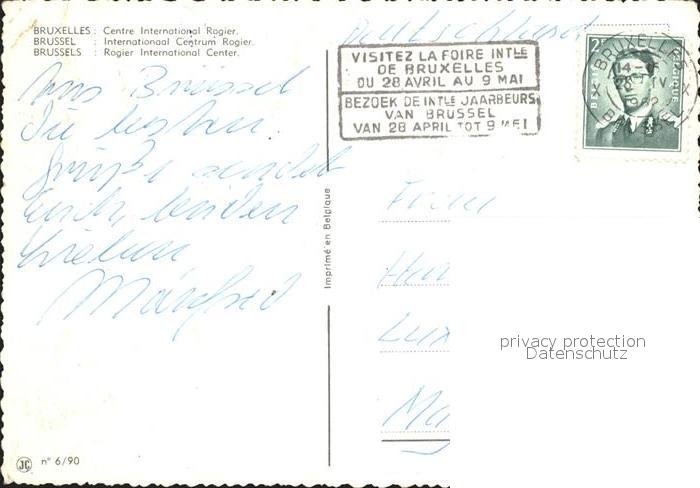 BRUXELLES : Centre International Rogier.
BRUSSEL : Internationaal Centrum Rogier.
BRUSSELS : Rogier International Center.
Deutschland
VISITEZ LA FOIRE INTLE
DE BRUXELLES
DU 28 AVRIL AU 9 MAI
BEZOEK DE INTLE JAARBEURS
VAN BRUSSEL
VAN 28 APRIL TOT 9 MEI
BRUXELLES
Aus Brüssel
die besten
Grüße sendet
euch beiden
Manfred
Imprimé en Belgique
Frau
Lux
Ma
privacy protection
Datenschutz
JC n° 6/90